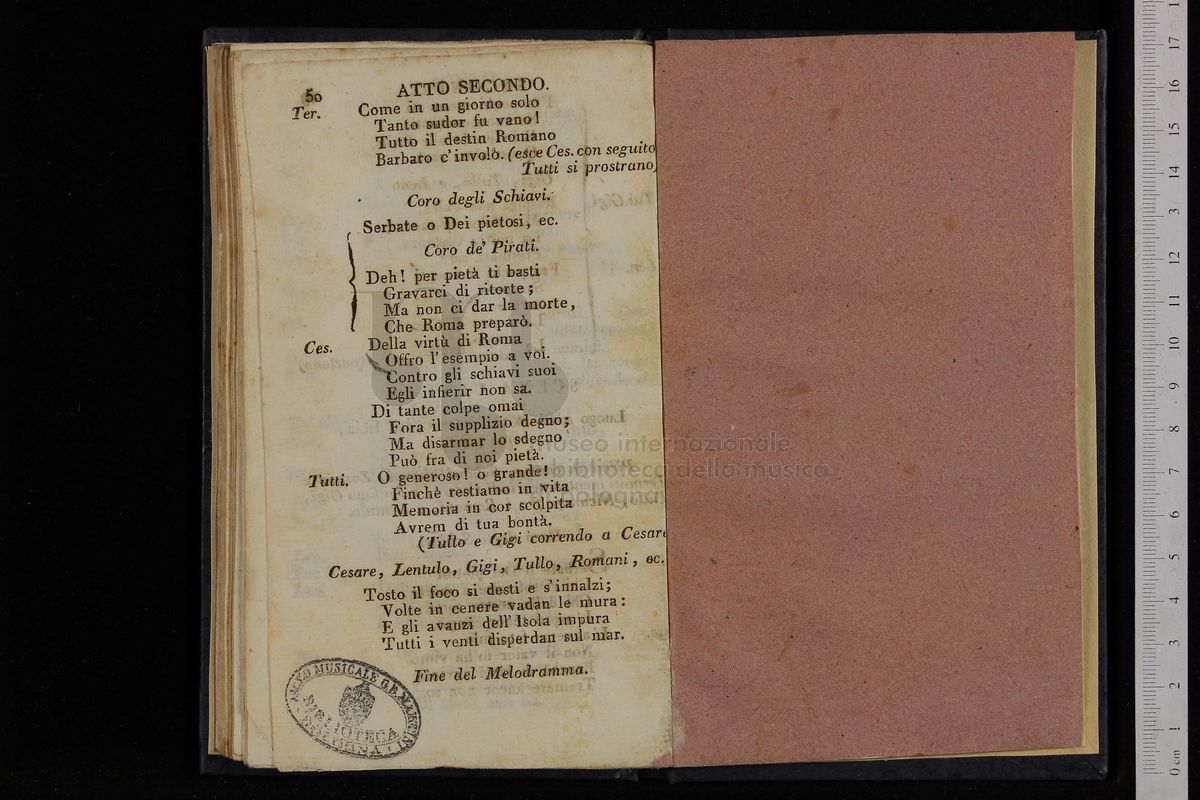 50
ATTO SECONDO.
Ter. Come in un giorno solo
Tanto sudor fu vano!
Tutto il destin Romano
Barbaro c'involò. (esce Ces. con seguito
Tutti si prostrano)
Coro degli Schiavi.
Serbate o Dei pietosi, ec.
Coro de' Pirati.
Deh! per pietà ti basti
Gravarci di ritorte;
Ma non ci dar la morte,
Che Roma preparò.
Ces. Della virtù di Roma
Offro l'esempio a voi.
Contro gli schiavi suoi
Egli infierir non sa.
Di tante colpe omai
Fora il supplizio degno;
Ma disarmar lo sdegno
Può fra di noi pietà.
Tutti. O generoso! o grande!
Finchè restiamo in vita
Memoria in cor scolpita
Avrem di tua bontà.
(Tullo e Gigi correndo a Cesare
Cesare, Lentulo, Gigi, Tullo, Romani, ec.
Tosto il foco si desti e s'innalzi;
Volte in cenere vadan le mura:
E gli avanzi dell'Isola impura
Tutti i venti disperdan sul mar.
Fine del Melodramma.
MUSICALE G.B. MARTINI
BIBLIOTECA
BOLOGNA
museo internazionale
biblioteca della musica
bologna
17
16
15
14
13
12
11
10
9
8
7
6
5
4
3
2
1
0 cm